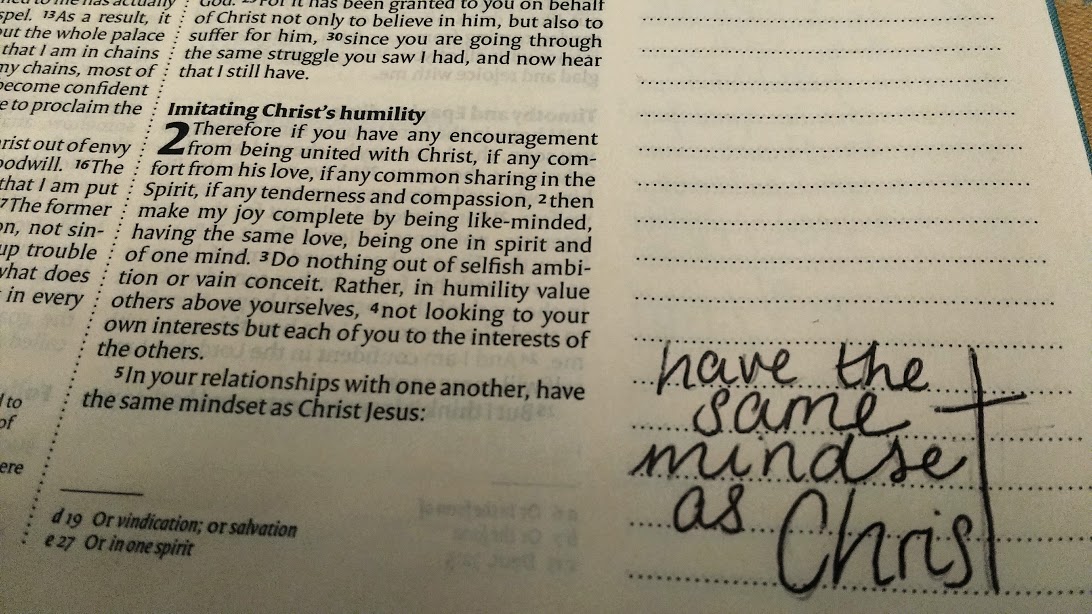 spel. 13As a result, it
out the whole palace
that I am in chains
my chains, most of
become confident
e to proclaim the
rist out of envy
oodwill. 16The
that I am put
7The former
on, not sin-
up trouble
what does
in every
d to
of
ere
God. 29For it has been granted to you on behalf
of Christ not only to believe in him, but also to
suffer for him, 30since you are going through
the same struggle you saw I had, and now hear
that I still have.
Imitating Christ's humility
2 Therefore if you have any encouragement
from being united with Christ, if any com-
fort from his love, if any common sharing in the
Spirit, if any tenderness and compassion, 2then
make my joy complete by being like-minded,
having the same love, being one in spirit and
of one mind. 3Do nothing out of selfish ambi-
tion or vain conceit. Rather, in humility value
others above yourselves, 4not looking to your
own interests but each of you to the interests of
the others.
5In your relationships with one another, have
the same mindset as Christ Jesus:
d 19 Or vindication; or salvation
e 27 Or in one spirit
have the
same
mindset
as Christ